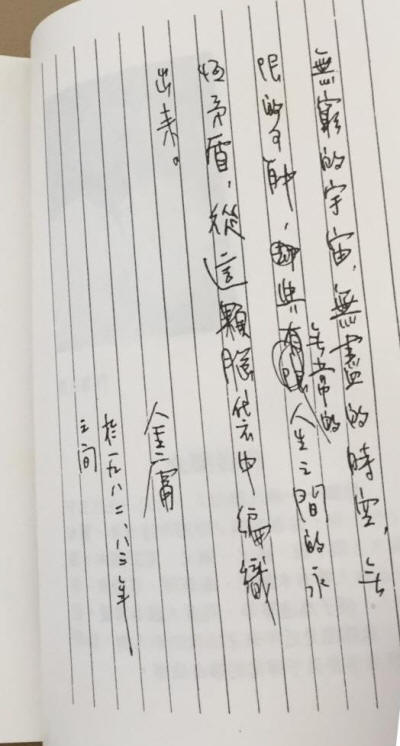 無窮的宇宙，無盡的時空，无
限的可能，卻與无常的人生之間的永
恆矛盾，從這顆腦袋中編織
出來。
金庸
於一九八二、八三年
之間